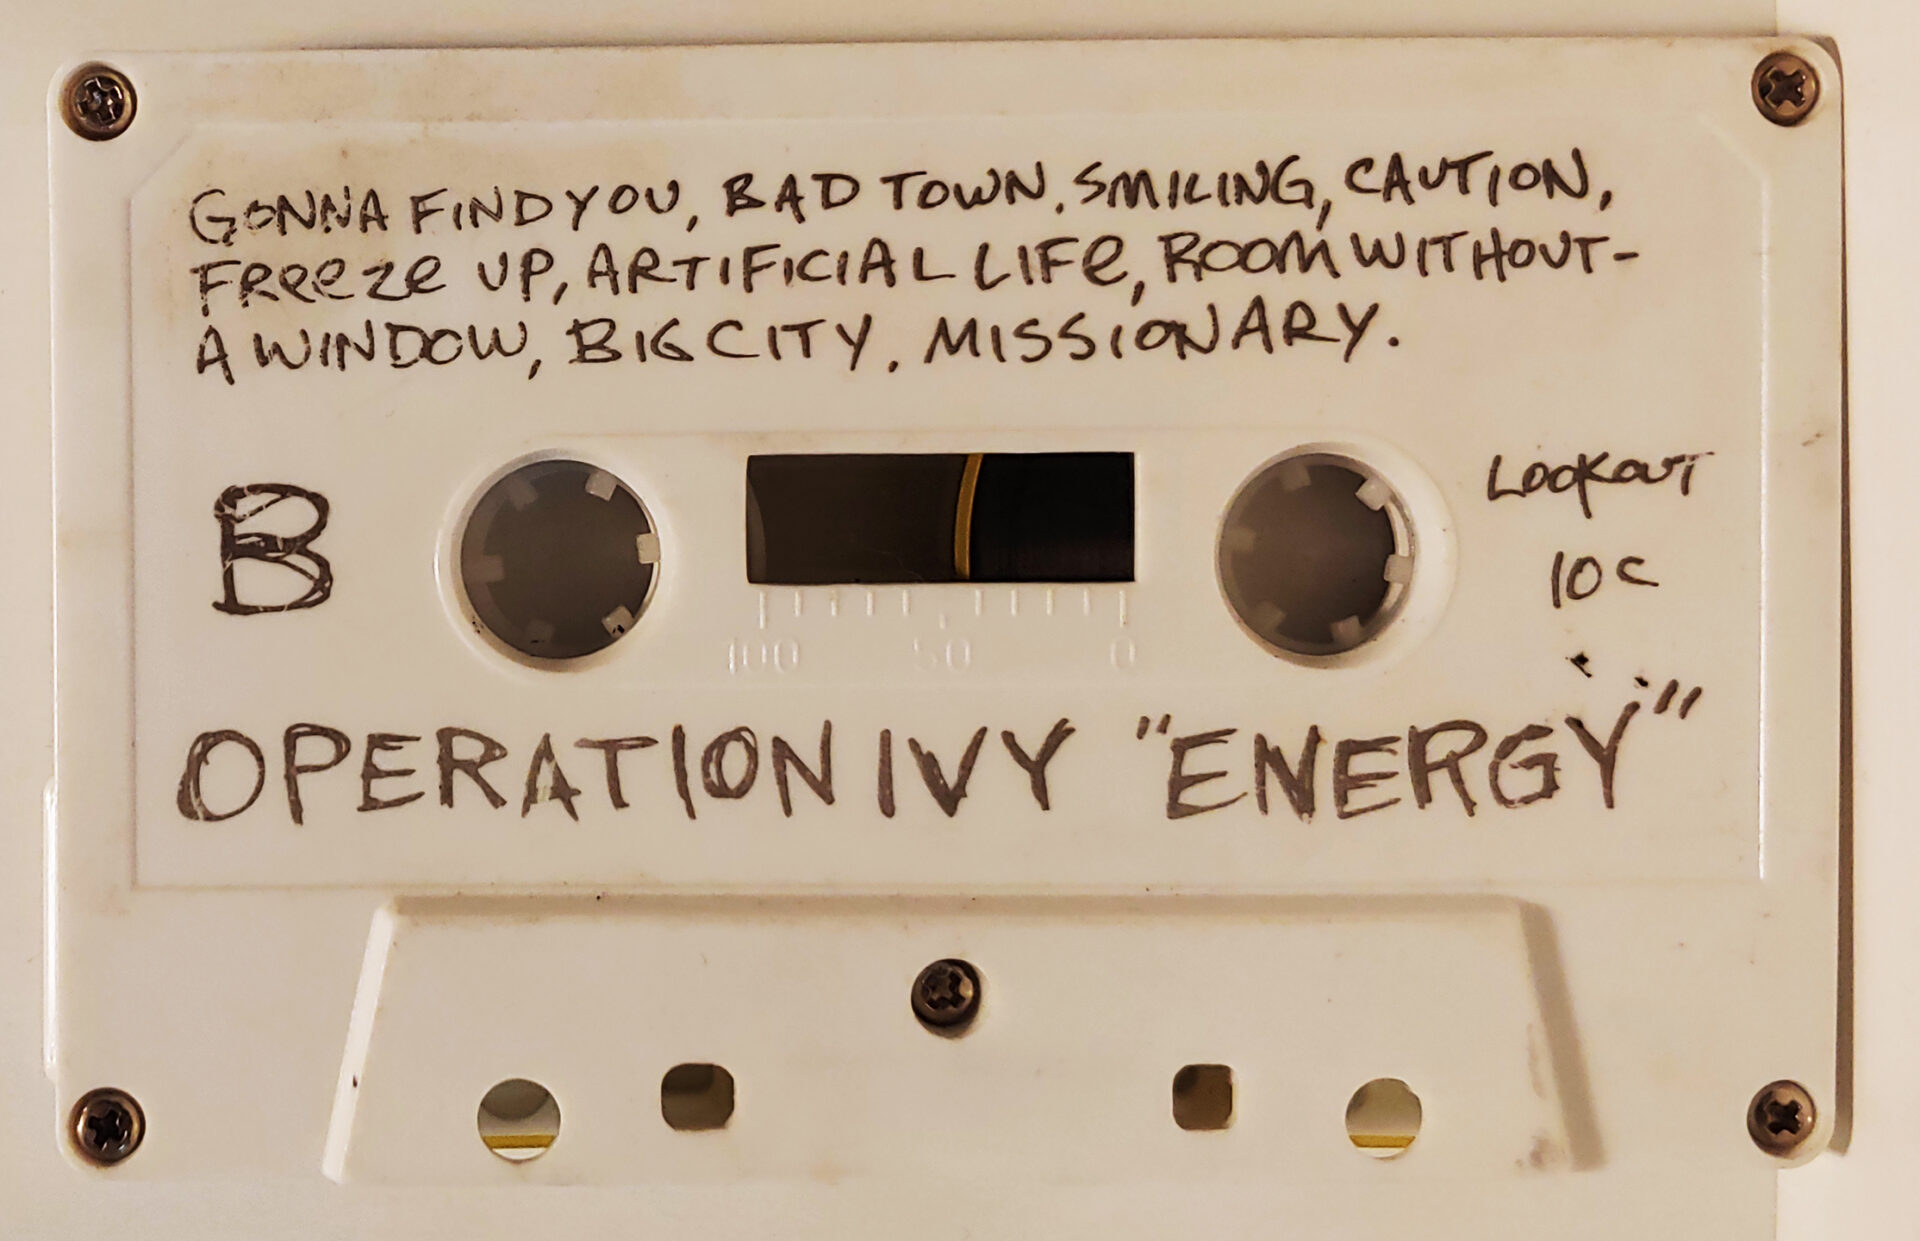 GONNA FIND YOU, BAD TOWN. SMILING, CAUTION,
FREEZE UP, ARTIFICIAL LIFE, ROOM WITHOUT-
A WINDOW, BIG CITY, MISSIONARY.
B
LOOKOUT
10 C
100 50 0
OPERATION IVY "ENERGY"